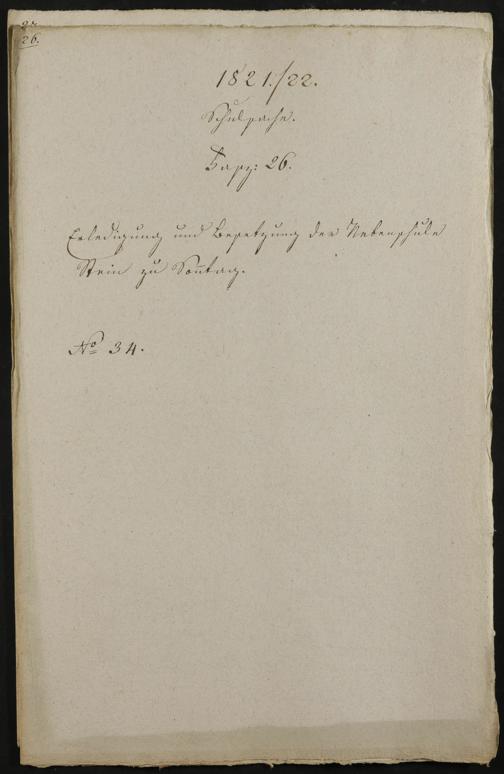 27.
26.
1821./22.
Schulsache.
Fasz: 26.
Erledigung und Besetzung der Nebenschule
Stein zu Sonntag.
No 34.